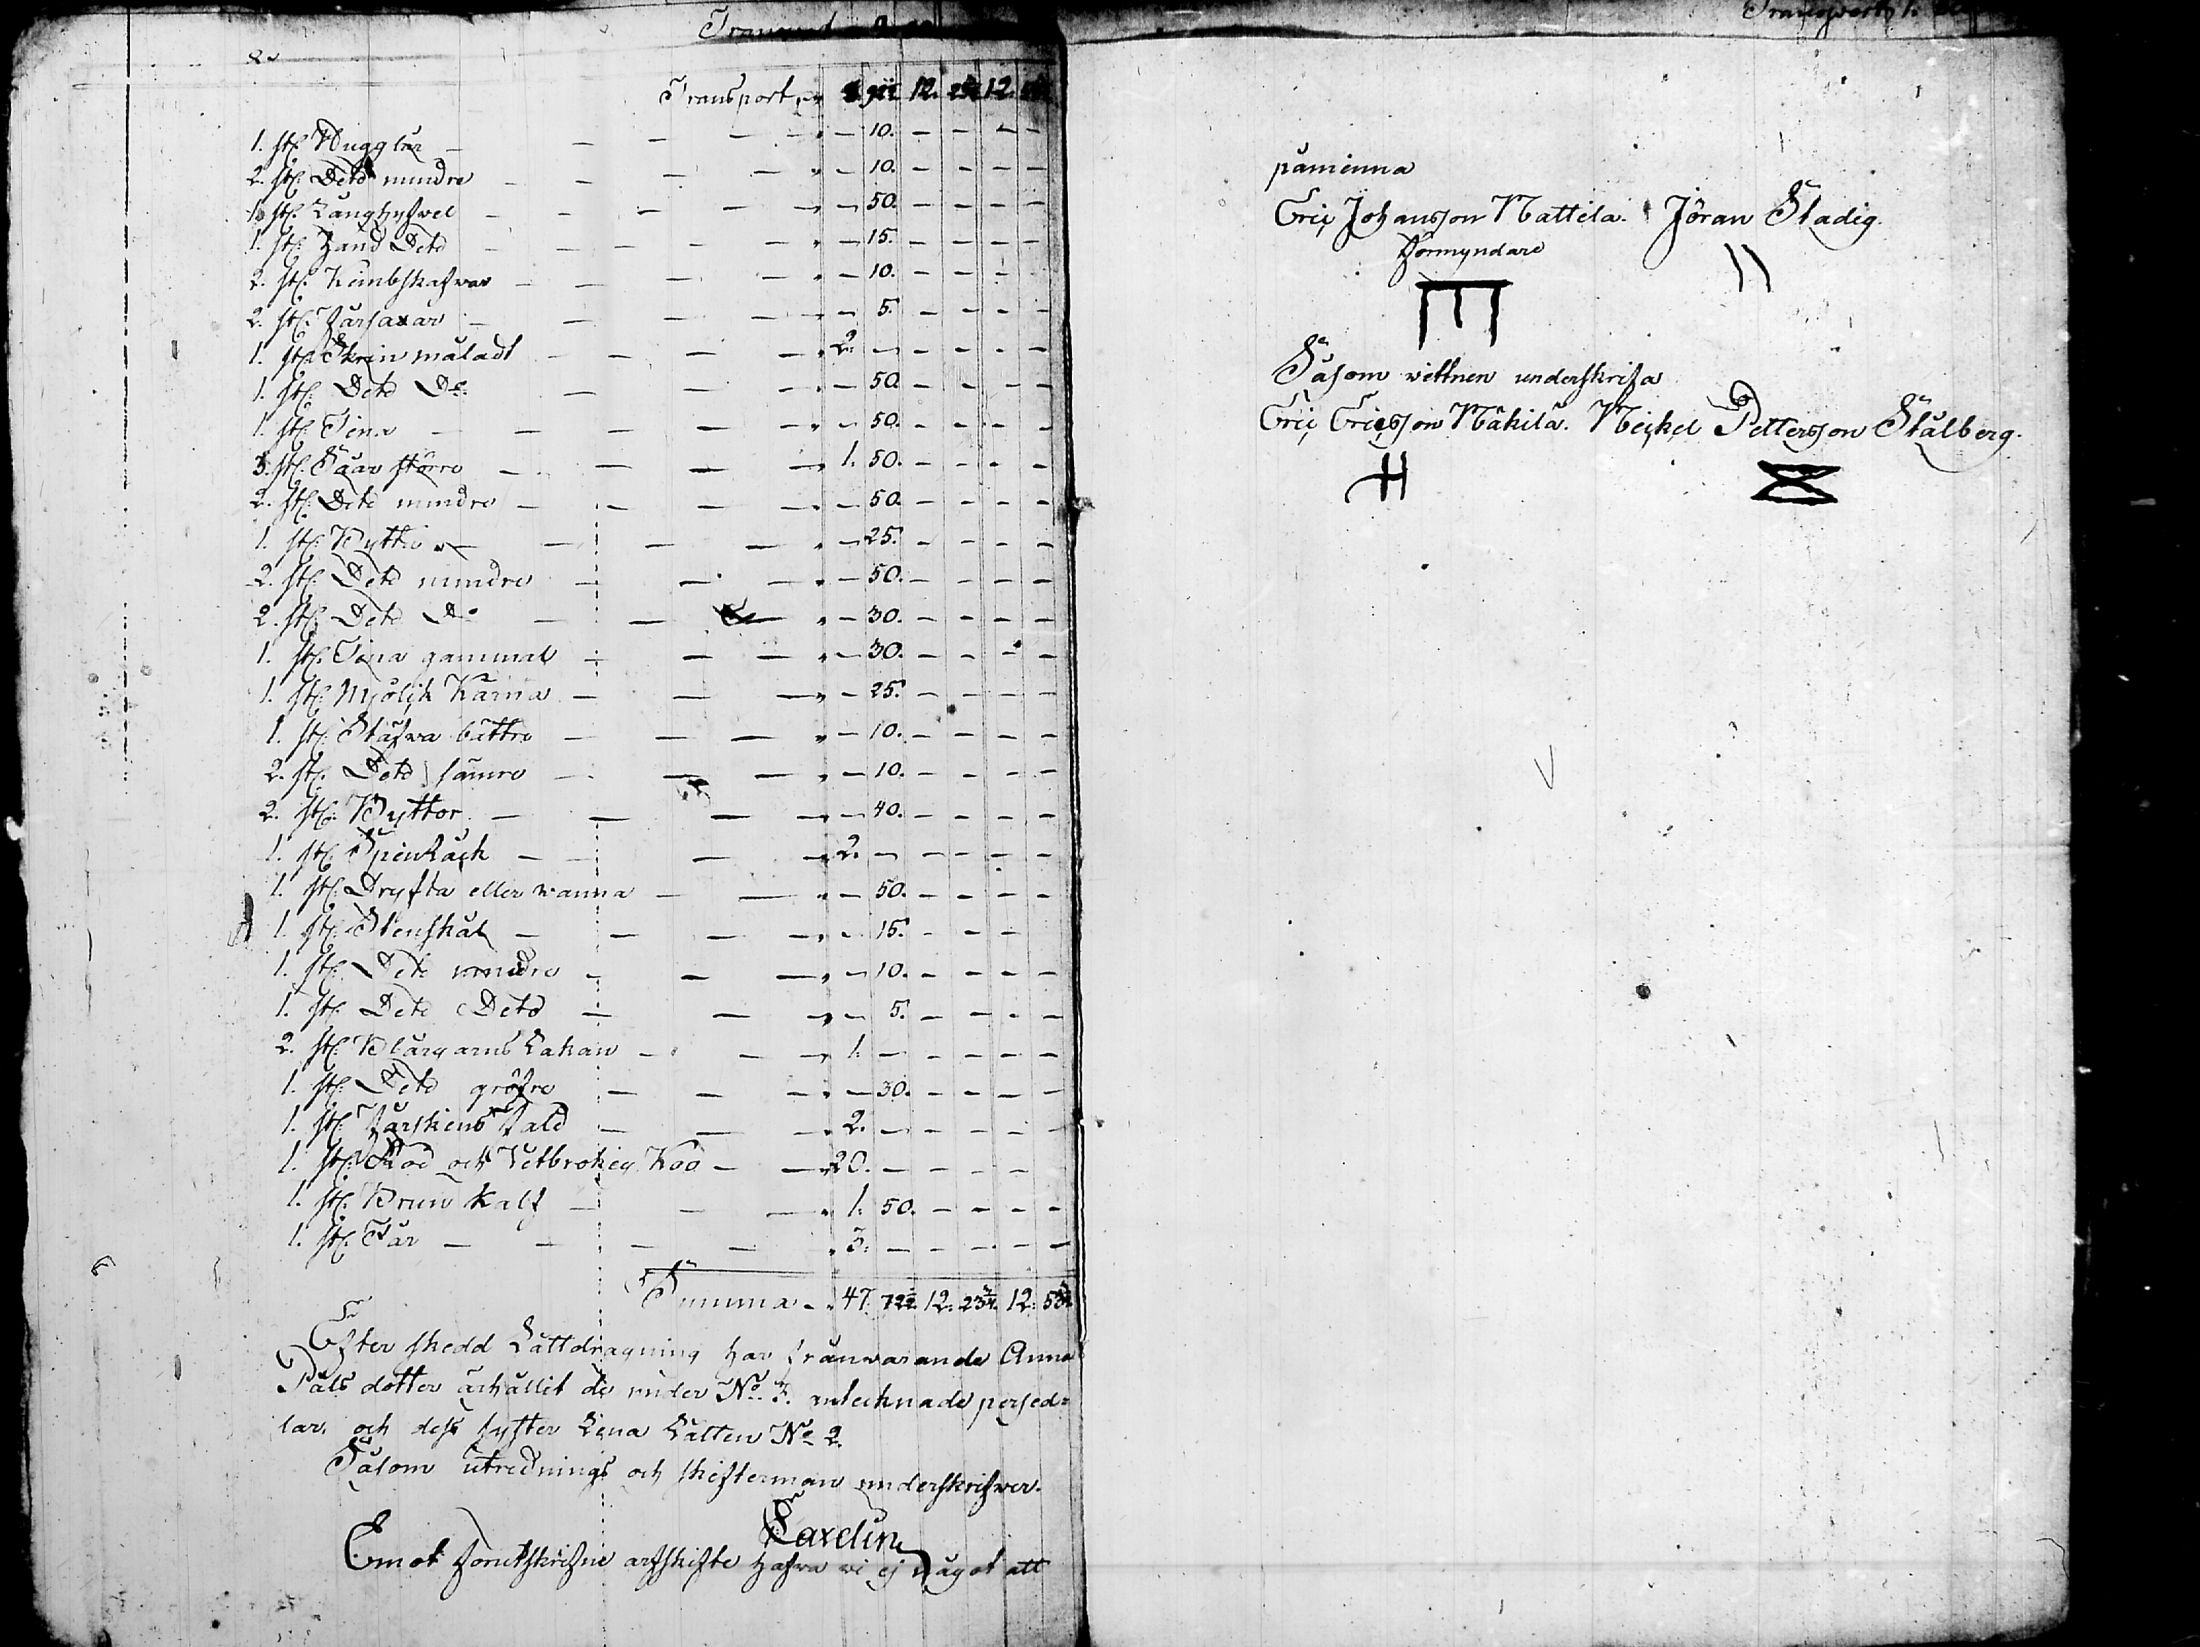 Transport
1. st. Hugglar — — — — 10. — — — —
2. st. Deto mindre — — — — 10. — — — —
1. st. Långhyfvel — — — — 50. — — — —
1. st. Hand Deto — — — — 15. — — — —
2. st. Kimbskafwar — — — — 10. — — —
2. st. Fårsaxar — — — — 5. — — — —
1. st. Skrin måladt — — — 2. — — — — —
1. st. Deto Do — — — — 50. — — — —
1. st. Tina — — — — 50. — — — —
3. st. Såar större — — — 1. 50. — — — —
2. st. Deto mindre — — — — 50. — — — —
1. st. Bytta — — — — 25. — — — —
2. st. Deto mindre — — — — 50. — — — —
2. st. Deto Do — — — 30. — — — —
1. st. Tina gammal — — — — 30. — — — —
1. st. Mjölk Kärna — — — — 25. — — — —
1. st. Stäfwa bättre — — — — 10. — — — —
2. st. Deto sämre — — — — 10. — — — —
2. st. Byttor — — — — 40. — — — —
1. st. — — — 2. — — — — —
1. st. Dryfta eller wanna — — — 50. — — — —
1. st. Stenskål — — — — 15. — — —
1. st. Deto mindre — — — — 10. — — — —
1. st. Deto Deto — — — — 5. — — — —
2. st. Blårgarns Lakan — — — 1. — — — — —
1. st. Deto gröfre — — — — 30. — — — —
1. st. Fårskins Fäld — — — 2. — — — — —
1. st. Röd och Hvitbrokig Koo — — 20. — — — —
1. st. Brun Kalf — — — 1. 50. — — — —
1. st. Får — — — — 3. — — — — —
Summa 47. 12. 12.
Efter skedd Lottdragning har frånvarande Anna
Påls dotter ärhållit de under No 3. antecknade persed-
lar, och dess syster Lena Lotten No 2.
Såsom utrednings och skiftesman underskrifwer.
Laxelin
Emot förutskrifne arfskifte hafwa vi ej något att
påminna
Eric Johansson Mattila. Jöran Stadig.
Förmyndare
Såsom vittnen underskrifa
Eric Ericsson Mäkilä. Meikel Pettersson Stålberg.